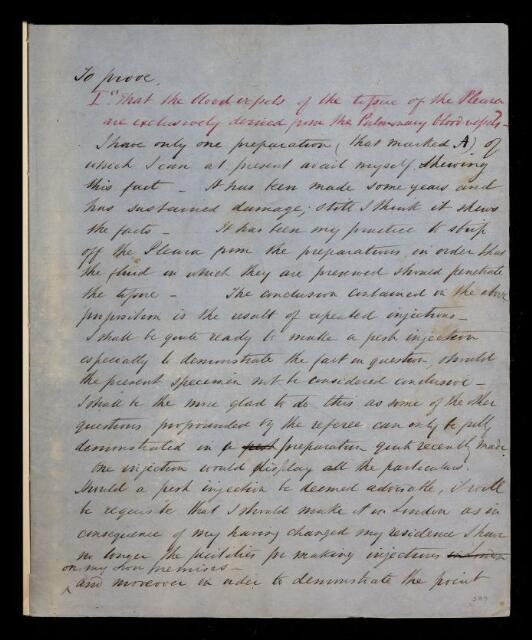 To prove.
1st That the blood vessels of the tissue of the Pleura
are exclusively derived from the Pulmonary blood vessels.
I have only one preparation (that marked A) of
which I can at present avail myself shewing
this fact – It has been made some years and
has sustained damage; still I think it shews
the facts – It has been my practice to strip
off the Pleura from the preparations, in order that
the fluid in which they are preserved should penetrate
the tissue – The conclusion contained in the above
proposition is the result of repeated injections –
I shall be quite ready to make a fresh injection
especially to demonstrate the fact in question, should
the present specimen not be considered conclusive –
I shall be the more glad to do this as some of the other
questions propounded by the referee can only be fully
demonstrated in a fresh preparation quite recently made.
One injection would display all the particulars.
Should a fresh injection be deemed advisable, it will
be requisite that I should make it in London as in
consequence of my having changed my residence I have
no longer the facilities for making injections
on my own premises –
and moreover in order to demonstrate the point